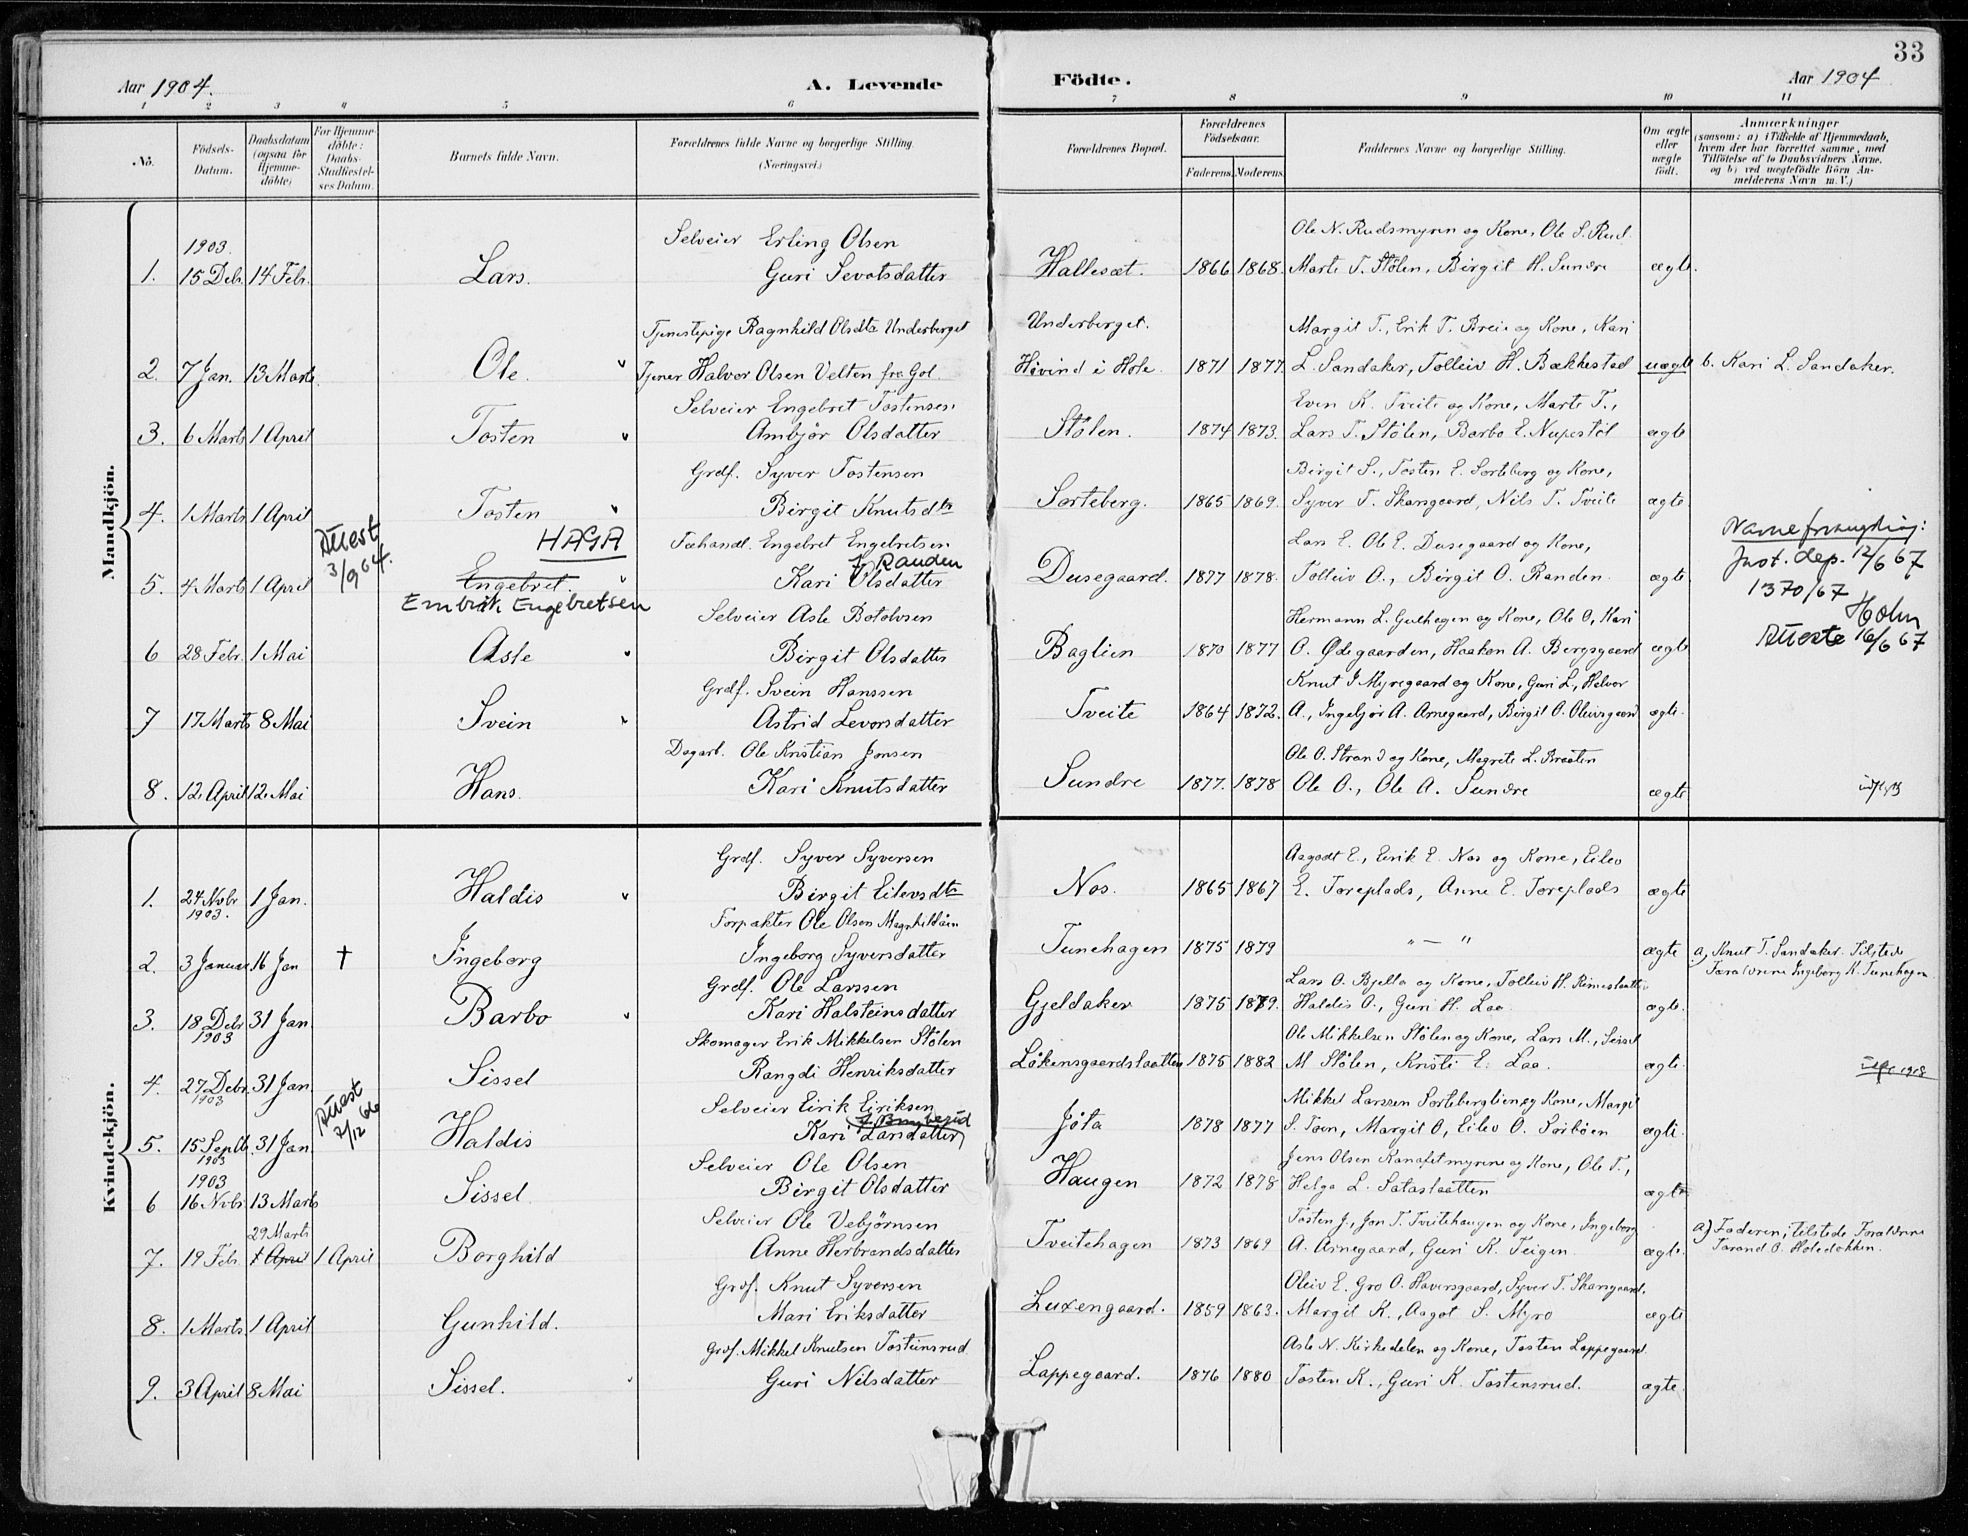 33
Aar 1904. A. Levende Födte. Aar 1904
1 2 3 4 5 6 7 8 9 10 11
No. Födsels-Datum. Daabsdatum (ogsaa for Hjemme-döbte) For Hjemme-döbte: Daabs-Stadfæstel-ses Datum. Barnets fulde Navn. Forældrenes fulde Navne og borgerlige Stilling. (Næringsvei.) Forældrenes Bopæl. Forældrenes Födselsaar. Faderens. Moderens. Faddernes Navne og borgerlige Stilling. Om ægte eller uægte födt. Anmærkninger (saasom: a) i Tilfælde af Hjemmedaab, hvem der har forrettet samme, med Tilföielse af to Daabsvidners Navne, og b) ved uægtefödte Börn An-melderens Navn m. V.)
Mandkjön.
1903. Selveier Erling Olsen Ole N. Rudsmyren og Kone, Ole S. Rud.
1. 15 Debr. 14 Febr. Lars. Guri Sevatsdatter Hallesæt. 1866 1868. Marte T. Stölen, Birgit H. Sundre ægte.
Tjenestepige Ragnhild Olsdtr Underberget Underberget. Margit T., Erik T. Breie og Kone, Kari
2. 7 Jan. 13 Marts Ole. Tjener Halvor Olsen Velten fra Gol. Hövind i Hole. 1871 1877. L. Sandaker, Tolleiv H. Bækkestad uægte b. Kari L. Sandaker.
Selveier Engebret Tostensen Even K. Tveite og Kone, Marte T.,
3. 6 Marts 1 April Tosten Ambjør Olsdatter Stölen. 1874 1873. Lars T. Stölen, Barbo E. Nupestöl ægte
Grdf. Syver Tostensen Birgit S., Tosten E. Sorteberg og Kone,
4. 1 Marts 1 April Tosten Birgit Knutsdtr Sorteberg. 1865 1869. Syver T. Skarsgaard, Nils T. Tveite ægte
Attest 3/9 64. HAGA Fæhandl. Engebret Engebretsen Lars E. Ole E. Dusegaard og Kone, Navneforandring:
5. 4 Marts 1 April Engebret. Kari Olsdatter f. Randen Dusegaard. 1877 1878. Tolleiv O., Birgit O. Randen. ægte Just. dep. 12/6 67
Embrik Engebretsen 1370/67
Selveier Asle Botolvsen Hermann L. Gulhagen og Kone, Ole O, Kari Holm
6 28 Febr. 1 Mai Asle Birgit Olsdatter Baglien 1870 1877 O. Ødegaarden, Haakon A. Bergsgaard ægte Atteste 16/6 67
Grdf. Svein Hanssen Knut J Myregaard og Kone, Guri L., Halvor
7 17 Marts 8 Mai Svein Astrid Levorsdatter Tveite 1864 1872. A., Ingebjør A. Arnegaard, Birgit O. Oleivsgaard ægte.
Dagarb. Ole Kristian Jonsen Ole O. Strand og Kone, Magrete L. Braaten
8. 12 April 12 Mai Hans. Kari Knutsdatter Sundre 1877. 1878 Ole O., Ole A. Sundre ægte
Kvindekjön.
Grdf. Syver Syversen Aagodt E., Eirik E. Nos og Kone, Eilev
1. 24 Novbr 1903. 1 Jan. Haldis Birgit Eilevsdtr Nos. 1865 1867 E. Toreplads, Anne E. Toreplads ægte
Forpakter Ole Olsen Magnhildöen
2. 3 Januar 16 Jan † Ingeborg Ingeborg Syversdatter Tunehagen 1875 1879 „ — “ ægte a) Knut T. Sandaker. Tilstede
Foraldrene Ingeborg K. Tunehagen
Grdf. Ole Larssen Lars O. Bjella og Kone, Tolleiv H. Rimeslaatten
3. 18 Debr 1903 31 Jan. Barbo Kari Halsteinsdatter Gjeldaker 1875 1879. Haldis O., Guri H. Laa. ægte.
Skomager Erik Mikkelsen Stölen Ole Mikkelsen Stölen og Kone, Lars M., Sissel
4. 27 Debr. 1903 31 Jan. Sissel Rangdi Henriksdatter Lökensgaardslaatten 1875 1882 M Stölen, Kristi E. Laa. ægte
Attest 7/12 66 Selveier Eirik Eiriksen Mikkel Larssen Sortebergtien og Kone, Margit
5. 15 Septb 1903 31 Jan. Haldis Kari Larsdatter Jöta 1878 1877 S. Toen, Margit O, Eilev O. Sorböen ægte.
1903 Selveier Ole Olsen Jens Olsen Kanafetmyrene og Kone, Ole T.,
6 16 Novbr. 13 Marts Sissel. Birgit Olsdatter Haugen 1872 1878 Helga L. Sataslaatten ægte
29 Marts Selveier Ole Vebjörnsen Tosten J., Jon T. Tveitehaugen og Kone, Ingeborg a) Faderen; tilstede Foraldrene
7. 19 Febr. 1 April 1 April Borghild Anne Herbrandsdatter Tveitehagen 1873 1869 A. Arnegaard, Guri K. Teigen. ægte. Tarand O. Holedokken.
Grdf. Knut Syversen Oleiv E. Gro O. Haversgaard, Syver T. Skarsgaard,
8. 1 Marts 1 April Gunhild. Mari Eriksdatter Luxengaard. 1859 1863. Margit K., Aagot S. Myro ægte
Grdf. Mikkel Knutsen Tosteinsrud Asle N. Kirkedelen og Kone, Tosten Lappegaard
9. 3 April 8 Mai Sissel. Guri Nilsdatter Lappegaard. 1876 1880 Tosten K., Guri K. Tostensrud. ægte.